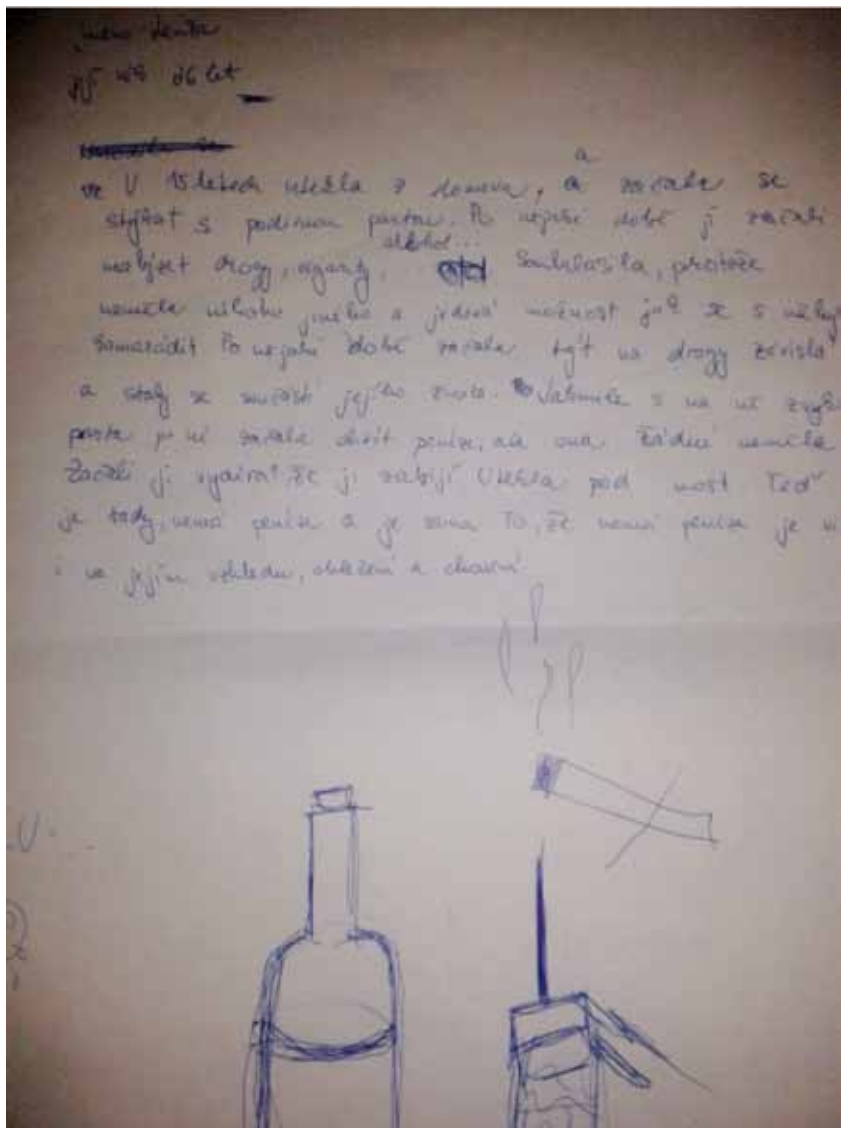 jméno Lenka
její věk 26 let
ve V 15 letech utekla z domova, a a začala se
stýkat s podivnou partou. Po nějaké době jí začali
nabízet drogy, cigarety, alkohol... Souhlasila, protože
neměla nikoho jiného a jediná možnost jak se s někým
samarádit Po nějaké době začala být na drogy závislá
a staly se součástí jejího života. Jakmile s na ně zvykla
parta po ní začala chtít peníze, ale ona žádné neměla
Začali ji vydírat, že ji zabijí Utekla pod most Teď
je tady, nemá peníze a je sama To, že nemá peníze je vi
i na jejím vzhledu, oblečení a chování